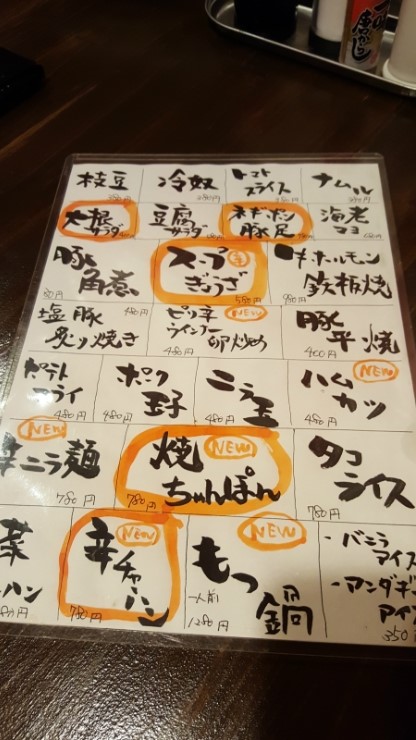 唐がらし
枝豆
冷奴
トマト
スライス
ナムル
大根
サラダ
豆腐
サラダ
ネギポン
豚足
海老
マヨ
豚
角煮
スープ
辛
ぎょうざ
580円
ホルモン
鉄板焼
塩豚
480円
炙り焼き
ピリ辛
NEW
ウインナー
卵炒め
480円
豚
平焼
400円
ポテト
フライ
480円
ポーク
玉子
480円
ニラ玉
480円
NEW
ハム
カツ
480円
NEW
辛ニラ麺
780円
焼
NEW
ちゃんぽん
780円
タコ
ライス
780円
菜
ーハン
NEW
辛チャーハン
780円
NEW
もつ
鍋
一人前
1280円
・バニラ
アイス
・アンダギー
アイ
350